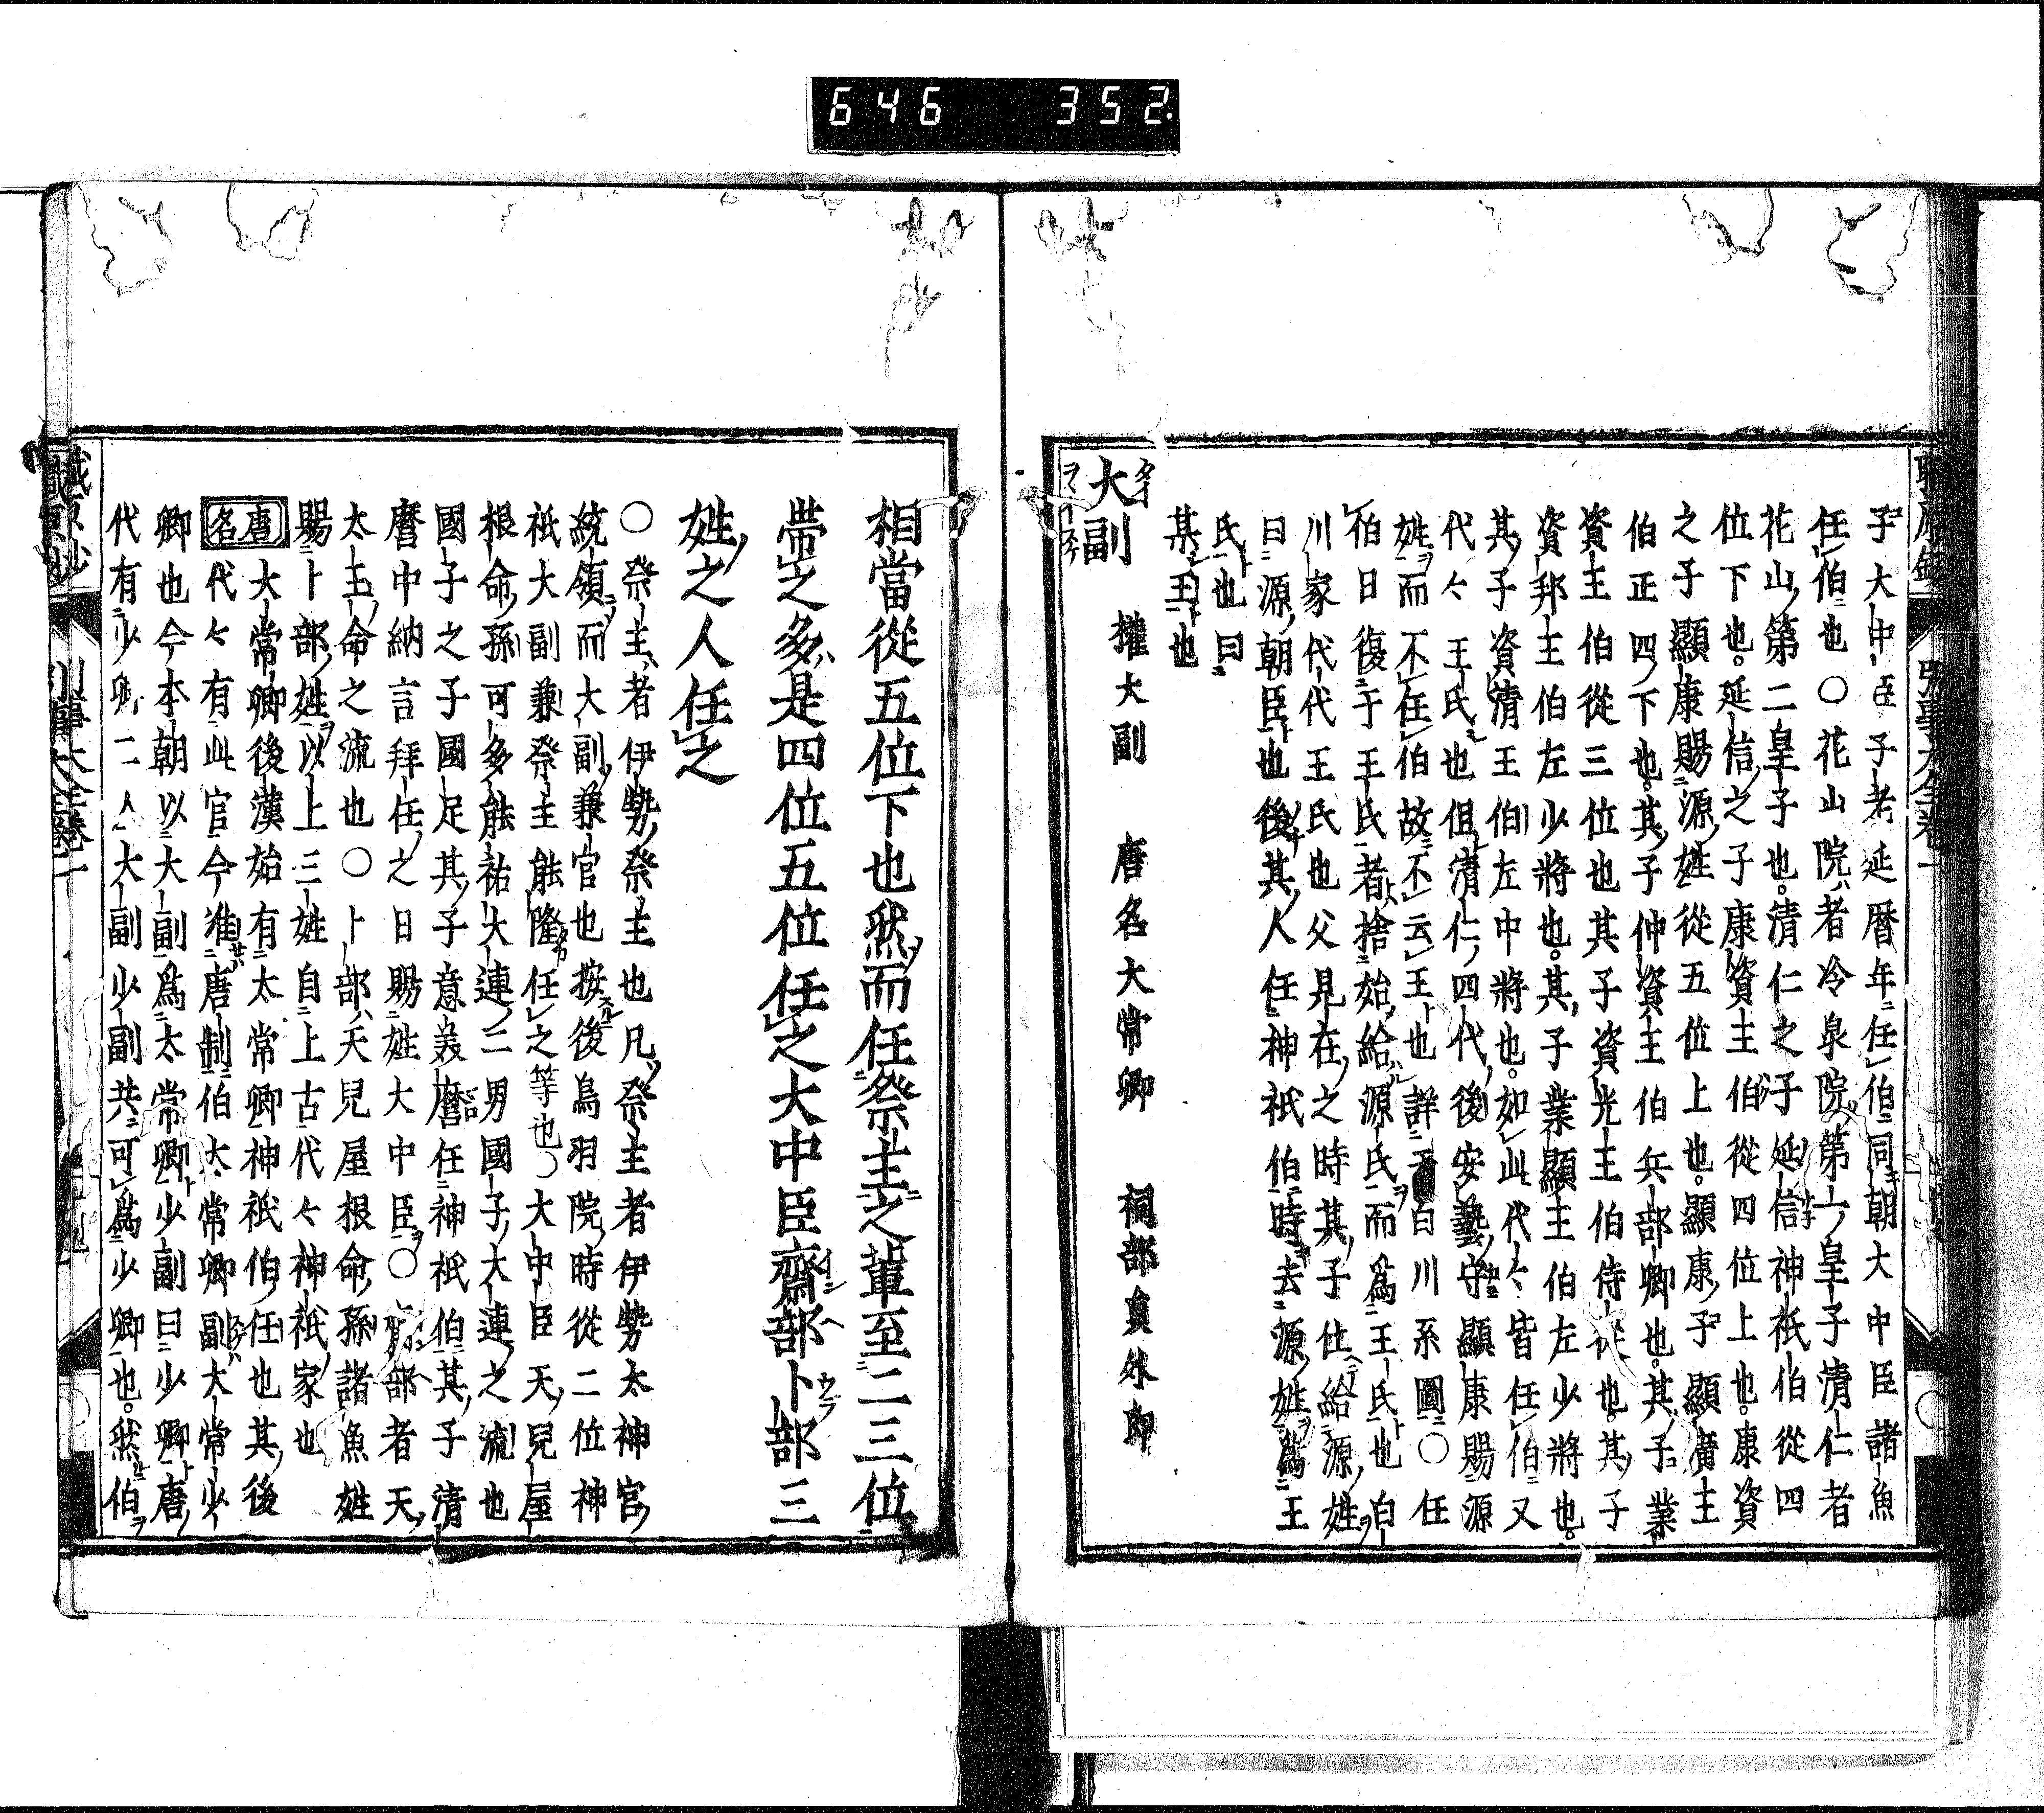 646 352
子大中臣子老延暦年任伯同朝大中臣諸魚
任伯也〇花山院者冷泉院第一皇子清仁者
花山第二皇子也清仁之子延信神祇伯從四
位下也延信之子康資主伯從四位上也康資
之子顯康賜源姓從五位上也顯康子顯廣主
伯正四下也其子仲資主伯兵部卿也其子業
資主伯從三位也其子資光主伯侍從也其子
資邦主伯左少將也其子業顯主伯左少將也
其子資清王伯左中將也如此代々皆任伯又
代々王氏也但清仁四代後安藝守顯康賜源
姓而不任伯故不云王也詳白川系圖〇任
伯日復于王氏者捨始給源氏而爲王氏也白
川家代代王氏也父見在之時其子仕給源姓
曰源朝臣也後其人任神祇伯時去源姓爲王
氏也曰
某王也
大副 權大副 唐名大常卿 祠部員外郎
相當從五位下也然而任祭主之輩至二三位
帶之多是四位五位任之大中臣齋部卜部三
姓之人任之
〇祭主者伊勢祭主也凡祭主者伊勢太神官
統領而大副兼官也按後鳥羽院時從二位神
祇大副兼祭主能隆任之等也〇大中臣天兒屋
根命孫可多能祐大連二男國子大連之流也
國子之子國足其子意美麿任神祇伯其子清
麿中納言拜任之日賜姓大中臣〇齋部者天
太玉命之流也〇卜部天兒屋根命孫諸魚姓
賜卜部姓以上三姓自上古代々神祇家也
唐名 大常卿後漢始有太常卿神祇伯任也其後
代々有此官今准唐制伯太常卿副大常少
卿也今本朝以大副爲太常卿少副曰少卿唐
代有少卿二人大副少副共可爲少卿也然伯